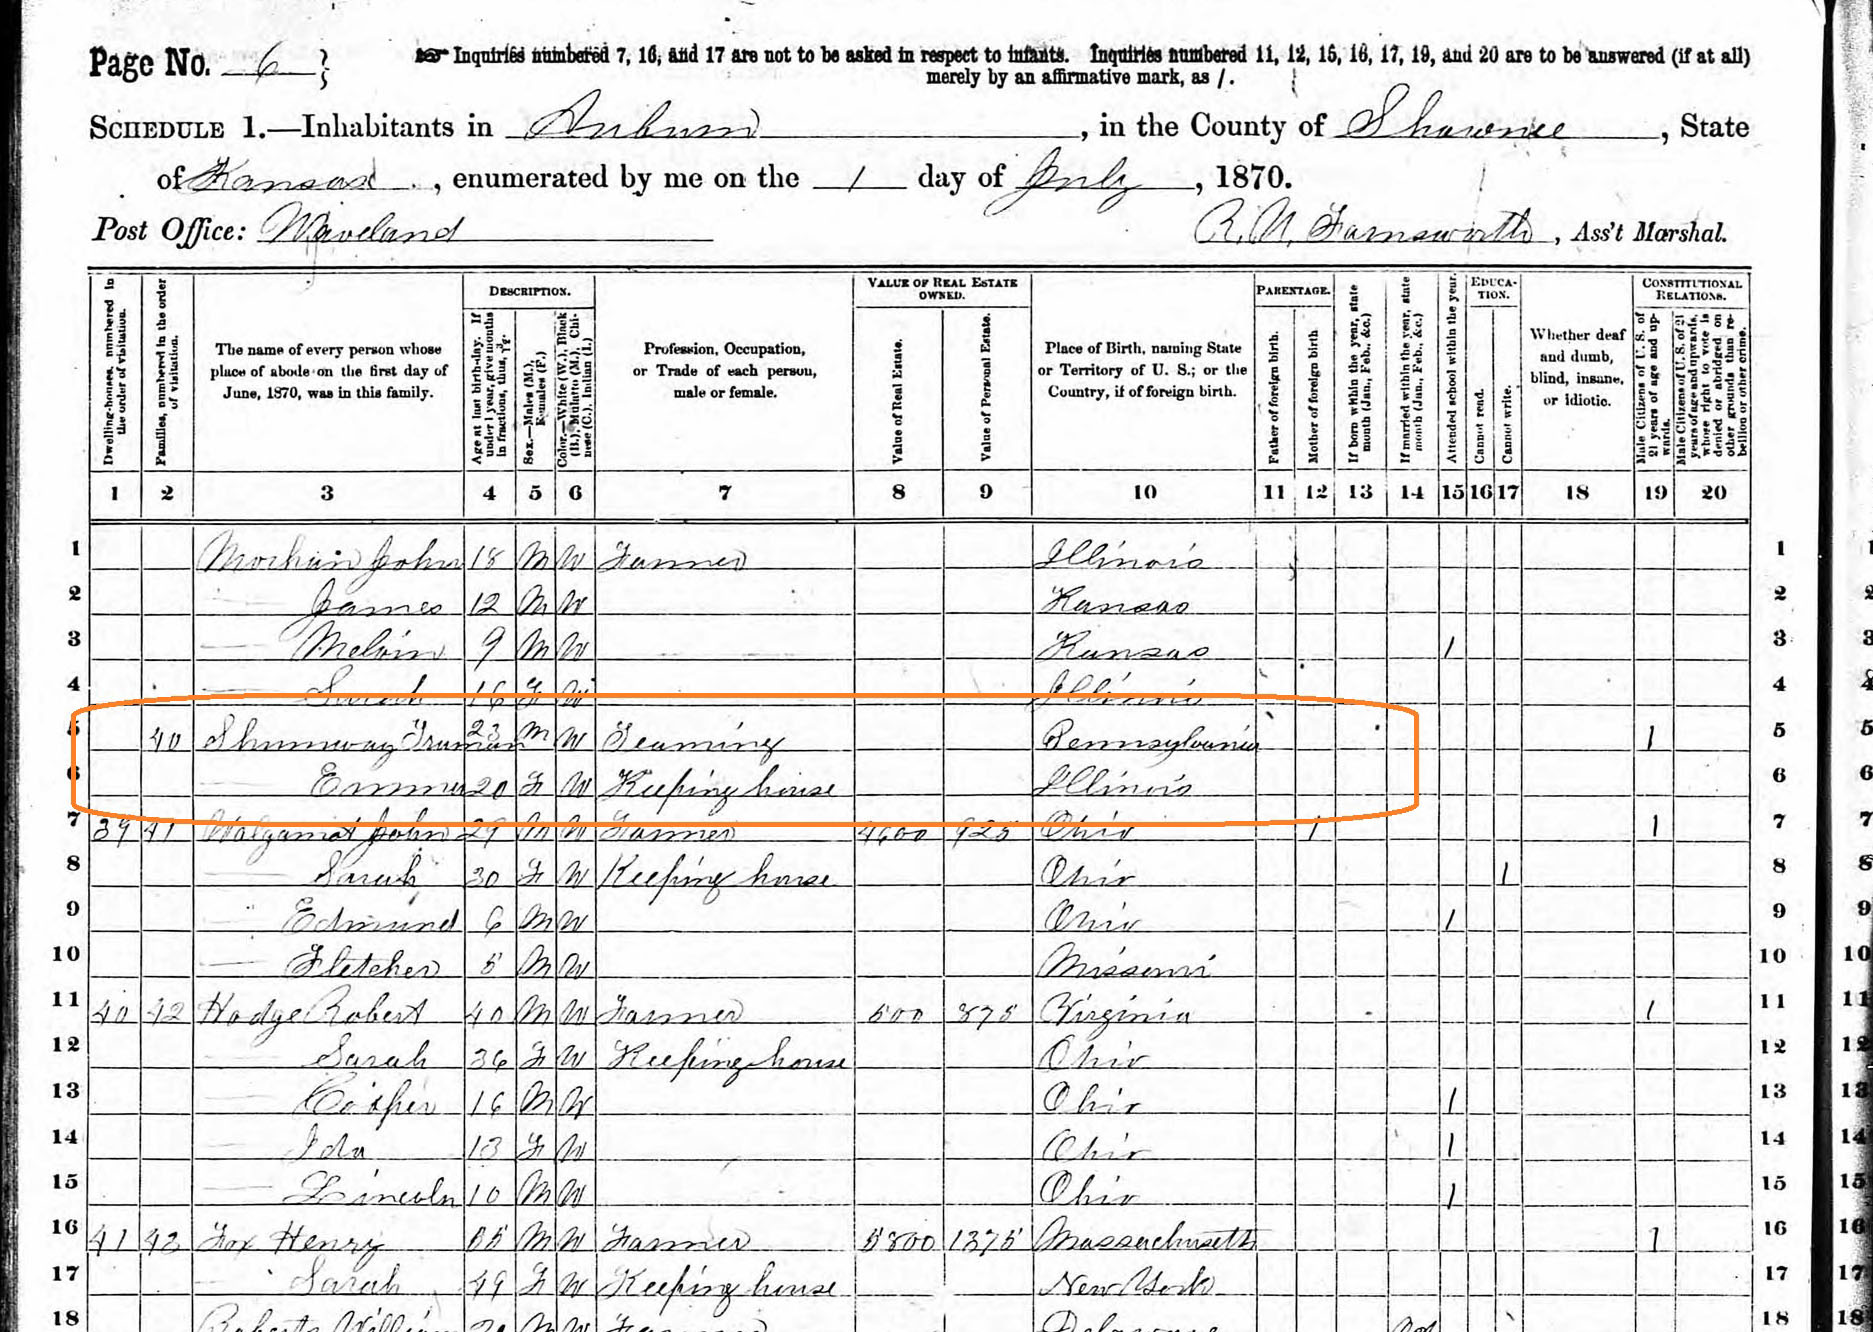 Page No. 6 } Inquiries numbered 7, 16, and 17 are not to be asked in respect to infants. Inquiries numbered 11, 12, 15, 16, 17, 19, and 20 are to be answered (if at all)
merely by an affirmative mark, as /.
SCHEDULE 1.—Inhabitants in Auburn, in the County of Shawnee, State
of Kansas, enumerated by me on the 1 day of July, 1870.
Post Office: Waveland R. U. Farnsworth, Ass't Marshal.
Dwelling-houses, numbered in the order of visitation.
Families, numbered in the order of visitation.
The name of every person whose place of abode on the first day of June, 1870, was in this family.
DESCRIPTION.
Age at last birth-day. If under 1 year, give months in fractions, thus, 3/12.
Sex.—Males (M.), Females (F.)
Color.—White (W.), Black (B.), Mulatto (M.), Chinese (C.), Indian (I.)
Profession, Occupation, or Trade of each person, male or female.
VALUE OF REAL ESTATE OWNED.
Value of Real Estate.
Value of Personal Estate.
Place of Birth, naming State or Territory of U. S.; or the Country, if of foreign birth.
PARENTAGE.
Father of foreign birth.
Mother of foreign birth
If born within the year, state month (Jan., Feb., &c.)
If married within the year, state month (Jan., Feb., &c.)
Attended school within the year.
EDUCATION.
Cannot read.
Cannot write.
Whether deaf and dumb, blind, insane, or idiotic.
CONSTITUTIONAL RELATIONS.
Male Citizens of U. S. of 21 years of age and upwards.
Male Citizens of U. S. of 21 years of age and upwards, whose right to vote is denied or abridged on other grounds than rebellion or other crime.
1 2 3 4 5 6 7 8 9 10 11 12 13 14 15 16 17 18 19 20
1 John 18 M W Farmer Illinois 1
2 James 12 M W Kansas 2
3 Melvin 9 M W Kansas / 3
4 Sarah 16 F W Illinois 4
5 40 Shumway Truman 23 M W Teaming Pennsylvania 1 5
6 Emma 20 F W Keeping house Illinois 6
7 39 41 Walgamot John 29 M W Farmer 4600 925 Ohio 1 1 7
8 Sarah 30 F W Keeping house Ohio 1 8
9 Edmund 6 M W Ohio / 9
10 Fletcher 5 M W Missouri 10
11 40 42 Hodge Robert 40 M W Farmer 500 875 Virginia 1 11
12 Sarah 36 F W Keeping house Ohio 12
13 16 M W Ohio 1 13
14 Ida 13 F W Ohio 1 14
15 Lincoln 10 M W Ohio 1 15
16 41 43 Fox Henry 55 M W Farmer 5800 1375 Massachusetts 1 16
17 Sarah 49 F W Keeping house New York 17
18 Roberts William M W Farmer Delaware 18